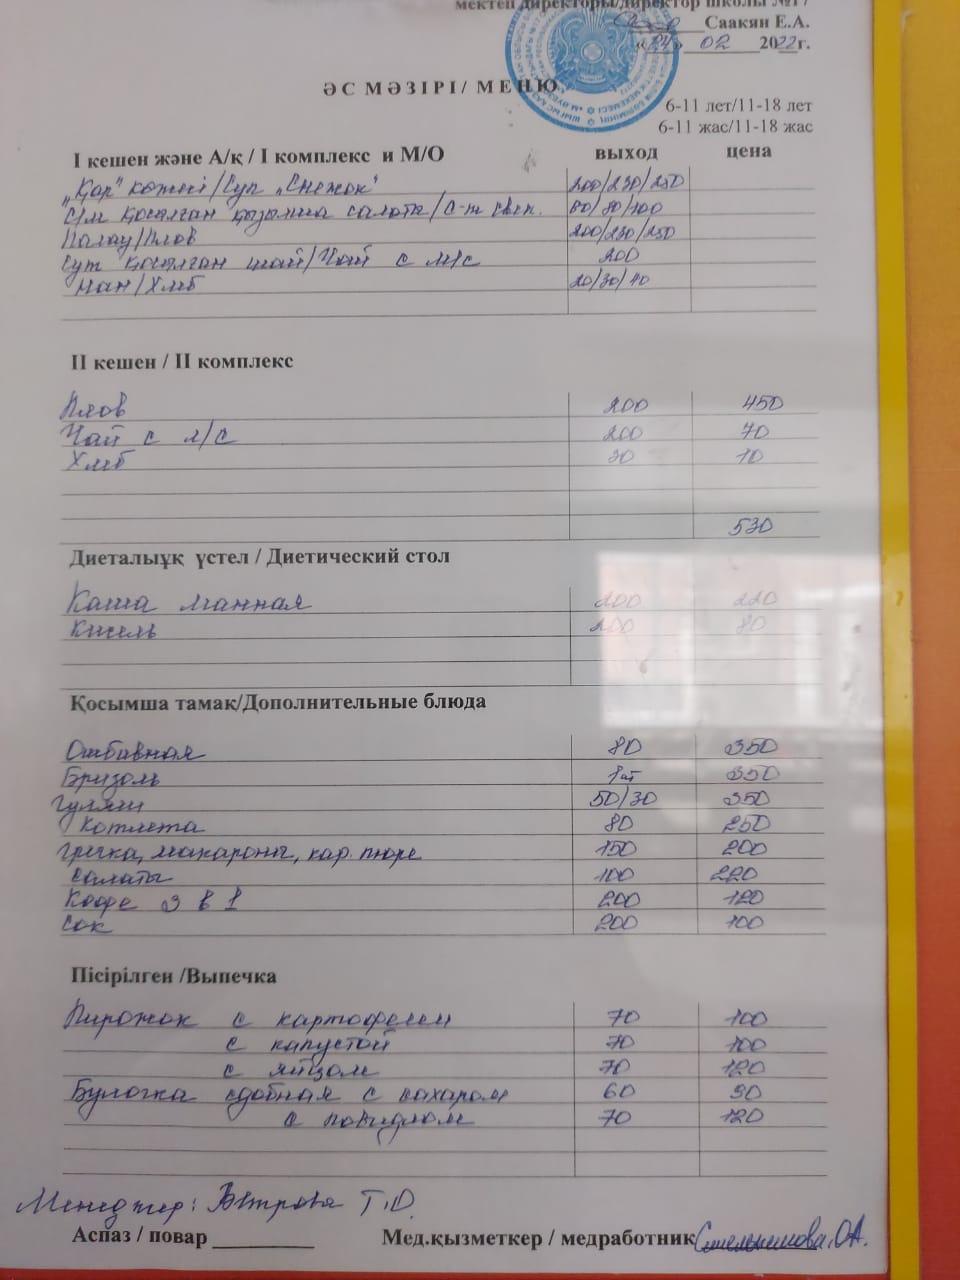 мектеп директоры/директор школы №17
Саакян Е.А.
«24» 02 2022г.
ӘС МӘЗІРІ/ МЕНЮ
6-11 лет/11-18 лет
6-11 жас/11-18 жас
I кешен және А/қ / I комплекс и М/О выход цена
„Қар" көжесі/Суп „Снежок" 200/230/250
С/м қосылған қызылша салаты/С-т свек. 60/80/100
Палау/Плов 200/230/250
Сүт қосылған шай/Чай с м/с 200
Нан/Хлеб 20/30/40
II кешен / II комплекс
Плов 200 450
Чай с м/с 200 70
Хлеб 30 10
530
Диеталыұқ үстел / Диетический стол
Каша манная 200 220
Кисель 200 80
Қосымша тамақ/Дополнительные блюда
Отбивная 80 350
Бризоль 1шт 350
Гуляш 50/30 350
Котлета 80 250
Гречка, макароны, кар. пюре 150 200
Салаты 100 220
Кофе 3 в 1 200 120
Сок 200 100
Пісірілген /Выпечка
Пирожок с картофелем 70 100
с капустой 70 100
с яйцом 70 120
Булочка сдобная с сахаром 60 90
с повидлом 70 120
Менеджер: Ветрова Т.О.
Аспаз / повар ________ Мед.қызметкер / медработник